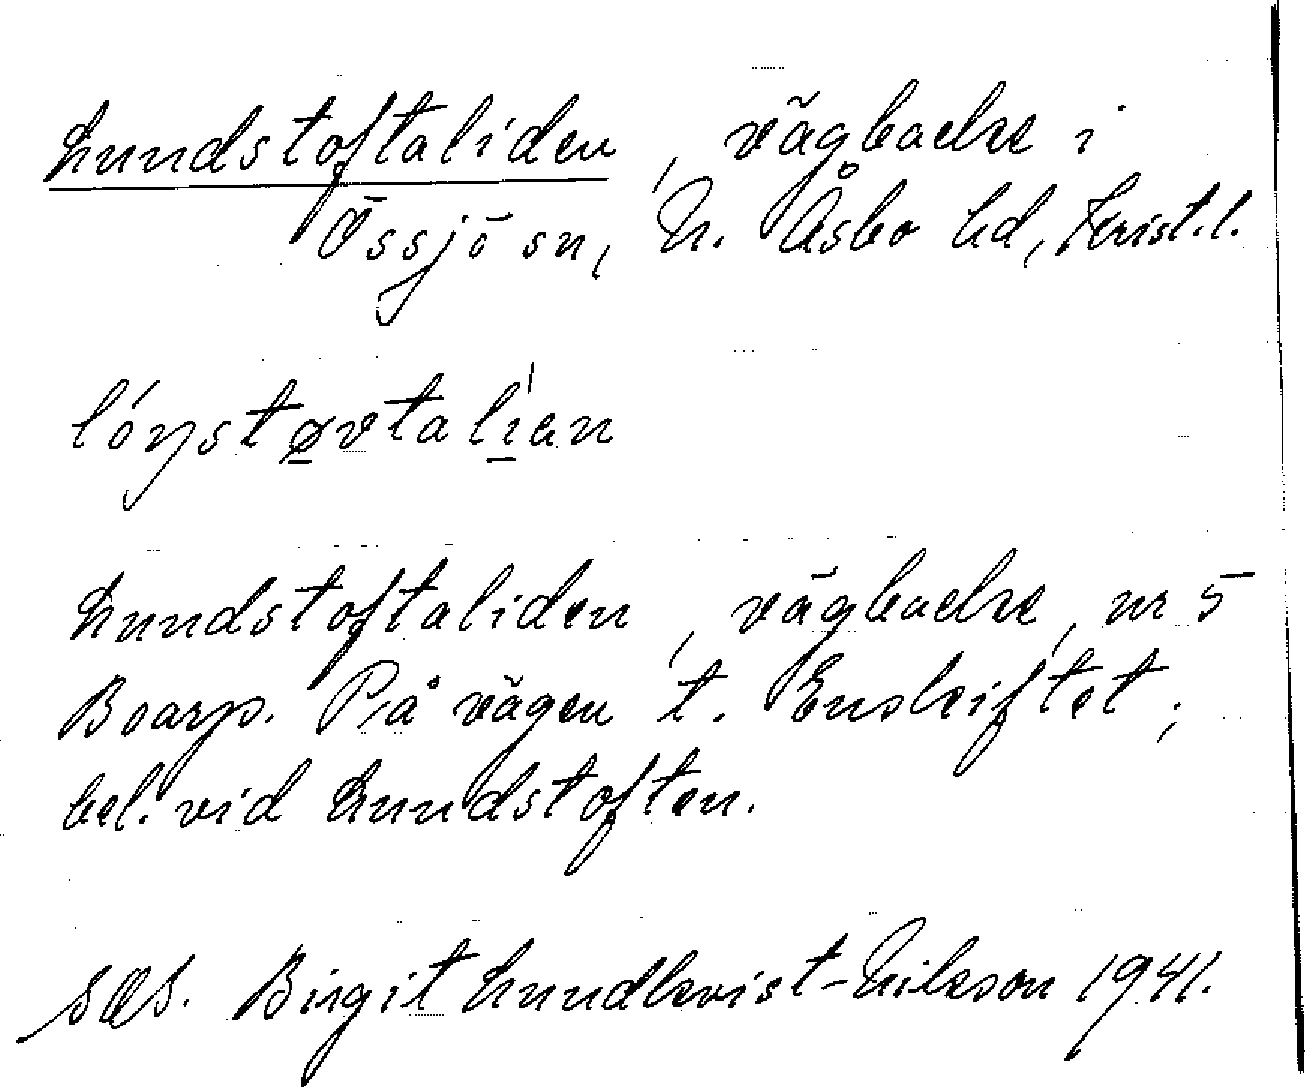 Lundstoftaliden, vägbacke i
Össjö sn, N. Åsbo hd, Krist.l.
lóŋstøvtalían
Lundstoftaliden, vägbacke, nr 5
Boarp. På vägen t. Enskiftet;
bel. vid Lundstoften.
Birgit Lundkvist-Nilsson 1941.